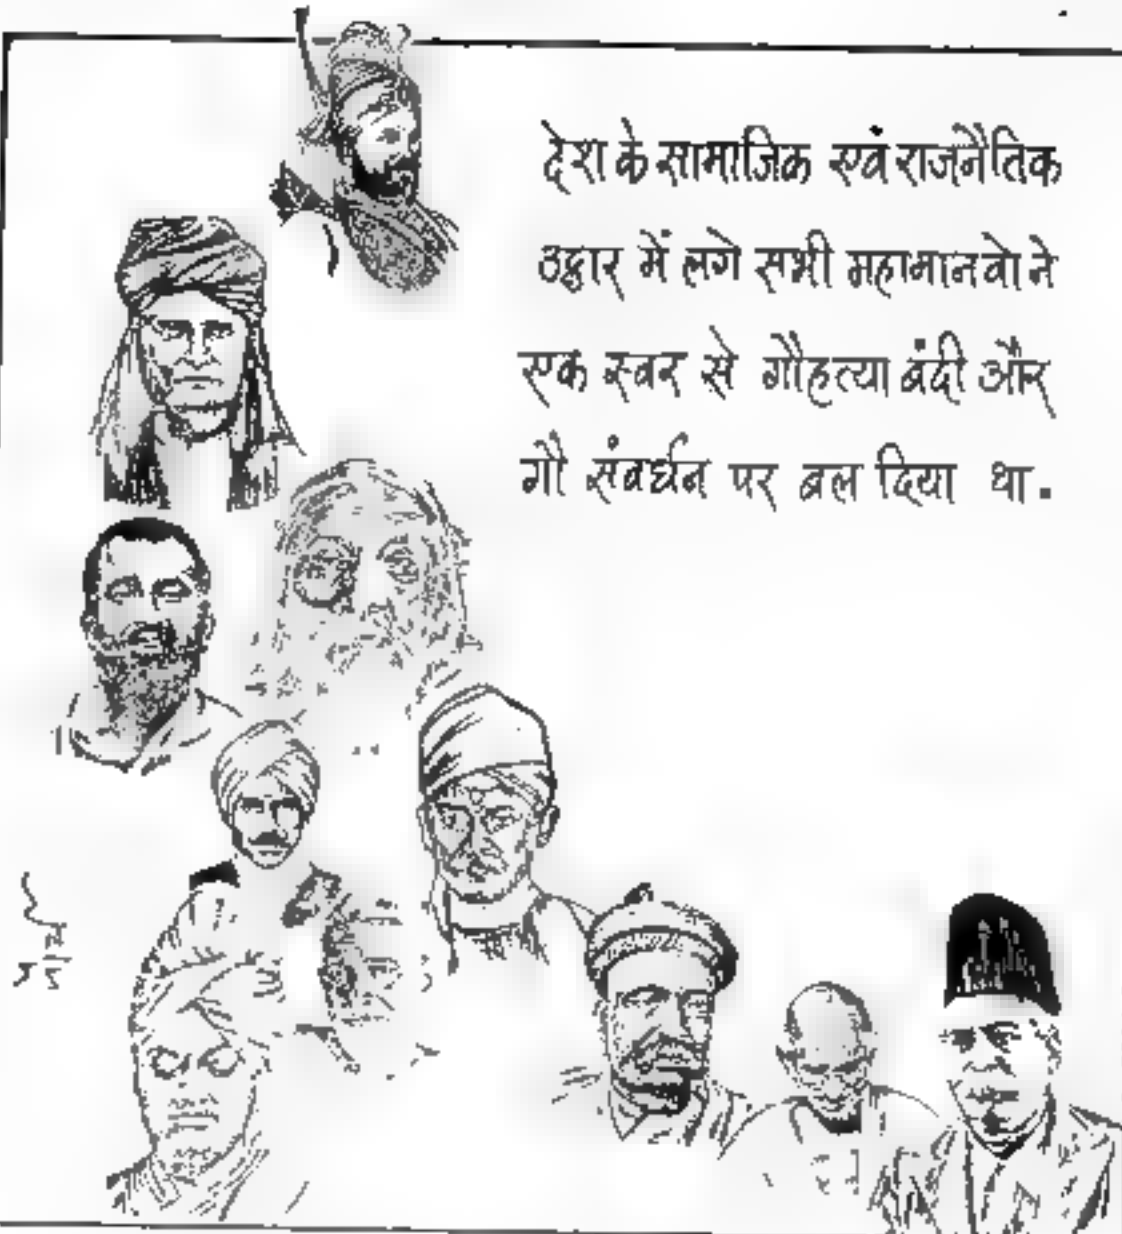 देश के सामाजिक एवं राजनैतिक
उद्धार में लगे सभी महामानवो ने
एक स्वर से गौहत्या बंदी और
गौ संवर्धन पर बल दिया था.